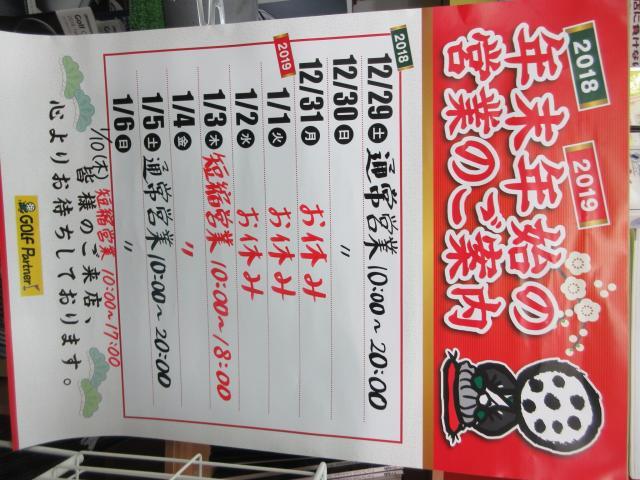 2018 2019
年末年始の
営業のご案内
2018
12/29 土 通常営業 10:00~20:00
12/30 日 〃
12/31 月 お休み
2019
1/1 火 お休み
1/2 水 お休み
1/3 木 短縮営業 10:00~18:00
1/4 金 〃
1/5 土 通常営業 10:00~20:00
1/6 日 〃
1/10(木) 短縮営業 10:00~17:00
皆様のご来店、
心よりお待ちしております。
GOLF Partner